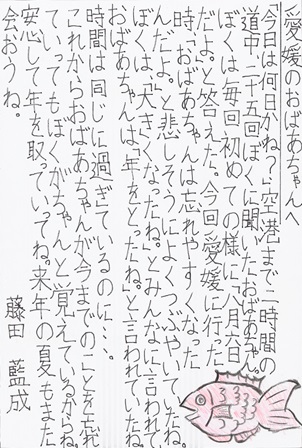 愛媛のおばあちゃんへ
「今日は何日かね？」空港まで二時間の
道中、二十五回ぼくに聞いたおばあちゃん。
ぼくは毎回初めての様に「八月六日
だよ。」と答えた。今回愛媛に行った
時、「おばあちゃんは忘れやすくなった
んだよ。」と悲しそうによくつぶやいていたね。
ぼくは「大きくなったね。」とみんなに言われて、
おばあちゃんは「年をとったね。」と言われていたね。
時間は同じに過ぎているのに…。
これからおばあちゃんが今までのことを忘れ
ていってもぼくがちゃんと覚えているからね。
安心して年を取っていってね。来年の夏もまた
会おうね。 藤田 藍成